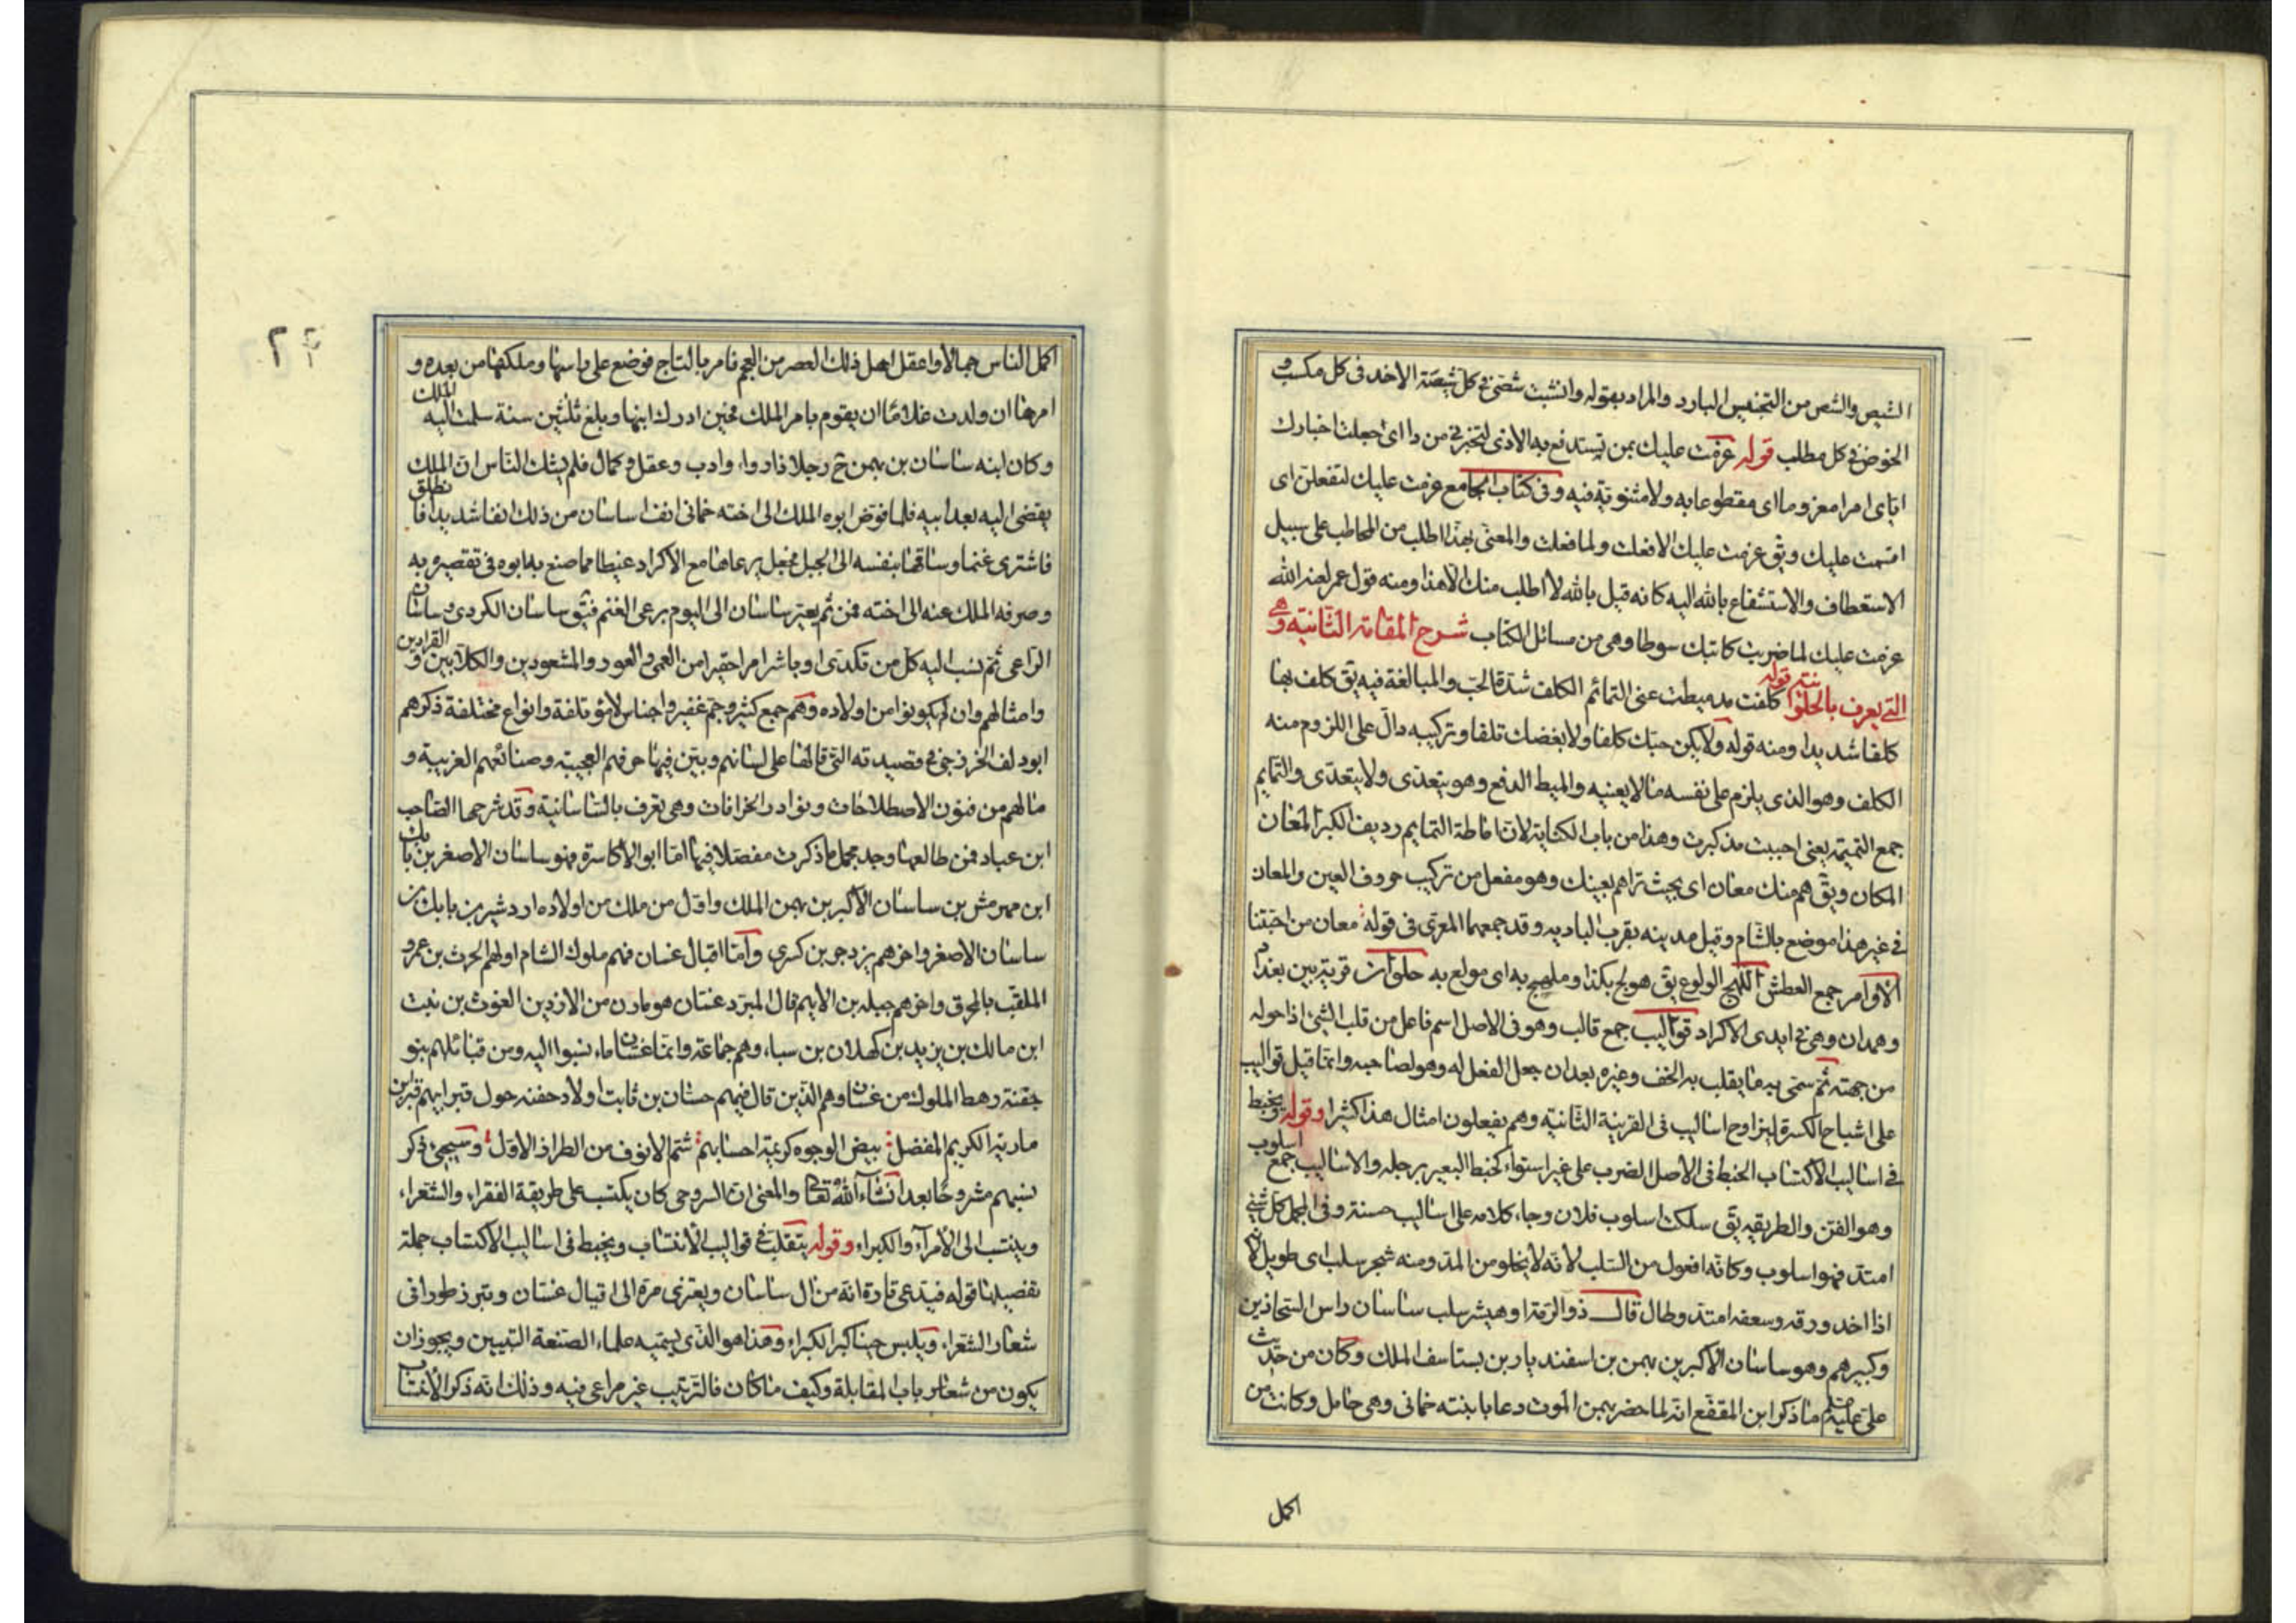 الشيص والشص من التجنيس البارد والمراد بقوله وانشبت شصى فى كل شيصة الاخذ فى كل مكسب و
الخوض فى كل مطلب قوله عزمت عليك بمن تستدفع به الاذى لتخبرنى من ذا اى جعلت اخبارك
اياى امرا معزوما اى مقطوعا به ولا مثنوية فيه وفى كتاب الجامع عزمت عليك لتفعلن اى
اقسمت عليك ويق عزمت عليك الا فعلت ولما فعلت والمعنى بهذا اطلب من المخاطب على سبيل
الاستعطاف والاستشفاع بالله اليه كانه قيل بالله لا اطلب منك الا هذا ومنه قول عمر لعنه الله
عزمت عليك لما ضربت كاتبك سوطا وهى من مسائل الكتاب شرح المقامة الثانية وهى
التى يعرف بالحلوانية قوله كلفت مذ ميطت عنى التمائم الكلف شدة الحب والمبالغة فيه يق كلف بها
كلفا شديدا ومنه قوله ولا يكن حبك كلفا ولا بغضك تلفا وتركيبه دال على اللزوم منه
الكلف وهو الذى يلزم على نفسه ما لا يعنيه والميط الدفع وهو يتعدى ولا يتعدى والتمايم
جمع التميمة يعنى احببت مذ كبرت وهذا من باب الكناية لان اماطة التمايم رديف الكبر المعان
المكان ويق هم منك معان اى بحيث تراهم بعينك وهو مفعل من تركيب حروف العين والمعان
فى غير هذا موضع بالشام وقيل مدينه بقرب الباديه وقد جمعهما المعرى فى قوله معان من احبتنا
الاوامر جمع العطش اللهج الولوع يق هو لهج بكذا وملهج به اى مولع به حلوان قرية بين بغداد
وهمدان وهى فى ايدى الاكراد قواليب جمع قالب وهو فى الاصل اسم فاعل من قلب الشئ اذا حوله
من جهته ثم سمى به ما يقلب به الخف وغيره بعد ان جعل الفعل له وهو لصاحبه وانما قيل قواليب
على اشباح الكسرة ليزاوج اساليب فى القرينة الثانية وهم يفعلون امثال هذا كثيرا وقوله ويخبط
فى اساليب الاكتساب الخبط فى الاصل الضرب على غير استواء كخبط البعير برجله والاساليب جمع اسلوب
وهو الفن والطريقه يق سلكت اسلوب فلان وجاء كلامه على اساليب حسنة وفى المجمل كل شئ
امتد فهو اسلوب وكانه افعول من السلب لانه لا يخلو من المد ومنه شجر سلب اى طويل لانه
اذا اخذ ورقه وسعفه امتد وطال قال ذو الرمة او هيشر سلب ساسان راس الشحاذين
وكبيرهم وهو ساسان الاكبر بن بهمن بن اسفنديار بن بستاسف الملك وكان من حديث
على عليه ما ذكر ابن المقفع انه لما حضر بهمن الموت دعا بابنته خمانى وهى حامل وكانت من
اكمل
اكمل الناس جمالا واعقل اهل ذلك العصر من العجم فامر بالتاج فوضع على راسها وملكها من بعده و
امرها ان ولدت غلاما ان يقوم بامر الملك فحين ادرك ابنها وبلغ ثلثين سنة سلمت اليه الملك
وكان ابنه ساسان بن بهمن ح رجلا ذا رواء وادب وعقل و كمال فلم يشك الناس ان الملك
يفضى اليه بعد ابيه فلما فوض ابوه الملك الى اخته خمانى انف ساسان من ذلك انفا شديدا فانطلق
فاشترى غنما وساقها بنفسه الى الجبل فجعل يرعاها مع الاكراد غيظا مما صنع به ابوه فى تقصيره به
وصرفه الملك عنه الى اخته فمن ثم يعير ساسان الى اليوم برعى الغنم فيق ساسان الكردى و ساسان
الراعى ثم نسب اليه كل من تكدى او باشر امرا حقيرا من العمى و العور والمشعوذين والكلابين و القرادين
وامثالهم وان لم يكونوا من اولاده وهم جمع كثير وجم غفير واجناس مؤتلفة وانواع مختلفة ذكرهم
ابو دلف الخزرجى فى قصيدته التى قالها على لسانهم وبين فيها حرفهم العجيبة وصنائعهم الغريبة و
ما لهم من فنون الاصطلاحات ونوادر الخرافات وهى تعرف بالساسانية وقد شرحها الصاحب
ابن عباد فمن طالعها وجد مجمل ما ذكرت مفصلا فيها اما ابو الاكاسرة فهو ساسان الاصغر بن بابك
ابن مهرمش بن ساسان الاكبر بن بهمن الملك واول من ملك من اولاده اردشير بن بابك بن
ساسان الاصغر واخرهم يزدجر بن كسرى واما اقيال غسان فهم ملوك الشام اولهم الحرث بن عمرو
الملقب بالمحرق واخرهم جبله بن الايهم قال المبرد غسان هو مازن من الازد بن الغوث بن نبت
ابن مالك بن زيد بن كهلان بن سباء وهم جماعة وانما غسان ماء نسبوا اليه ومن قبائلهم بنو
جفنة رهط الملوك من غسان وهم الذين قال فيهم حسان بن ثابت اولاد جفنه حول قبر ابيهم قبر ابن
مارية الكريم المفضل بيض الوجوه كريمة احسابهم شم الانوف من الطراز الاول وسيجئ ذكر
نسبهم مشروحا بعد انشاء الله تعالى والمعنى ان السروجى كان يكتسب على طريقة الفقراء والشعراء
وينتسب الى الامراء والكبراء وقوله يتقلب فى قواليب الانتساب ويخبط فى اساليب الاكتساب جملة
تفصيلها قوله فيدعى تارة انه من ال ساسان ويعتزى مرة الى اقيال غسان ويبرز طورا فى
شعار الشعراء ويلبس حينا كبر الكبراء وهذا هو الذى يسميه علماء الصنعة التبيين ويجوز ان
يكون من شعار باب المقابلة وكيف ما كان فالترتيب غير مراعى فيه وذلك انه ذكر الانتساب